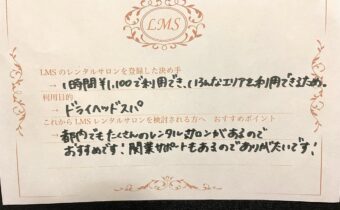 LMS
LMSのレンタルサロンを登録した決め手
→ 1時間¥1,100で利用でき、いろんなエリアを利用できるため。
利用目的
→ ドライヘッドスパ
これからLMSレンタルサロンを検討される方へ おすすめポイント
→ 都内でもたくさんのレンタルサロンがあるので
おすすめです！開業サポートもあるのでありがたいです！